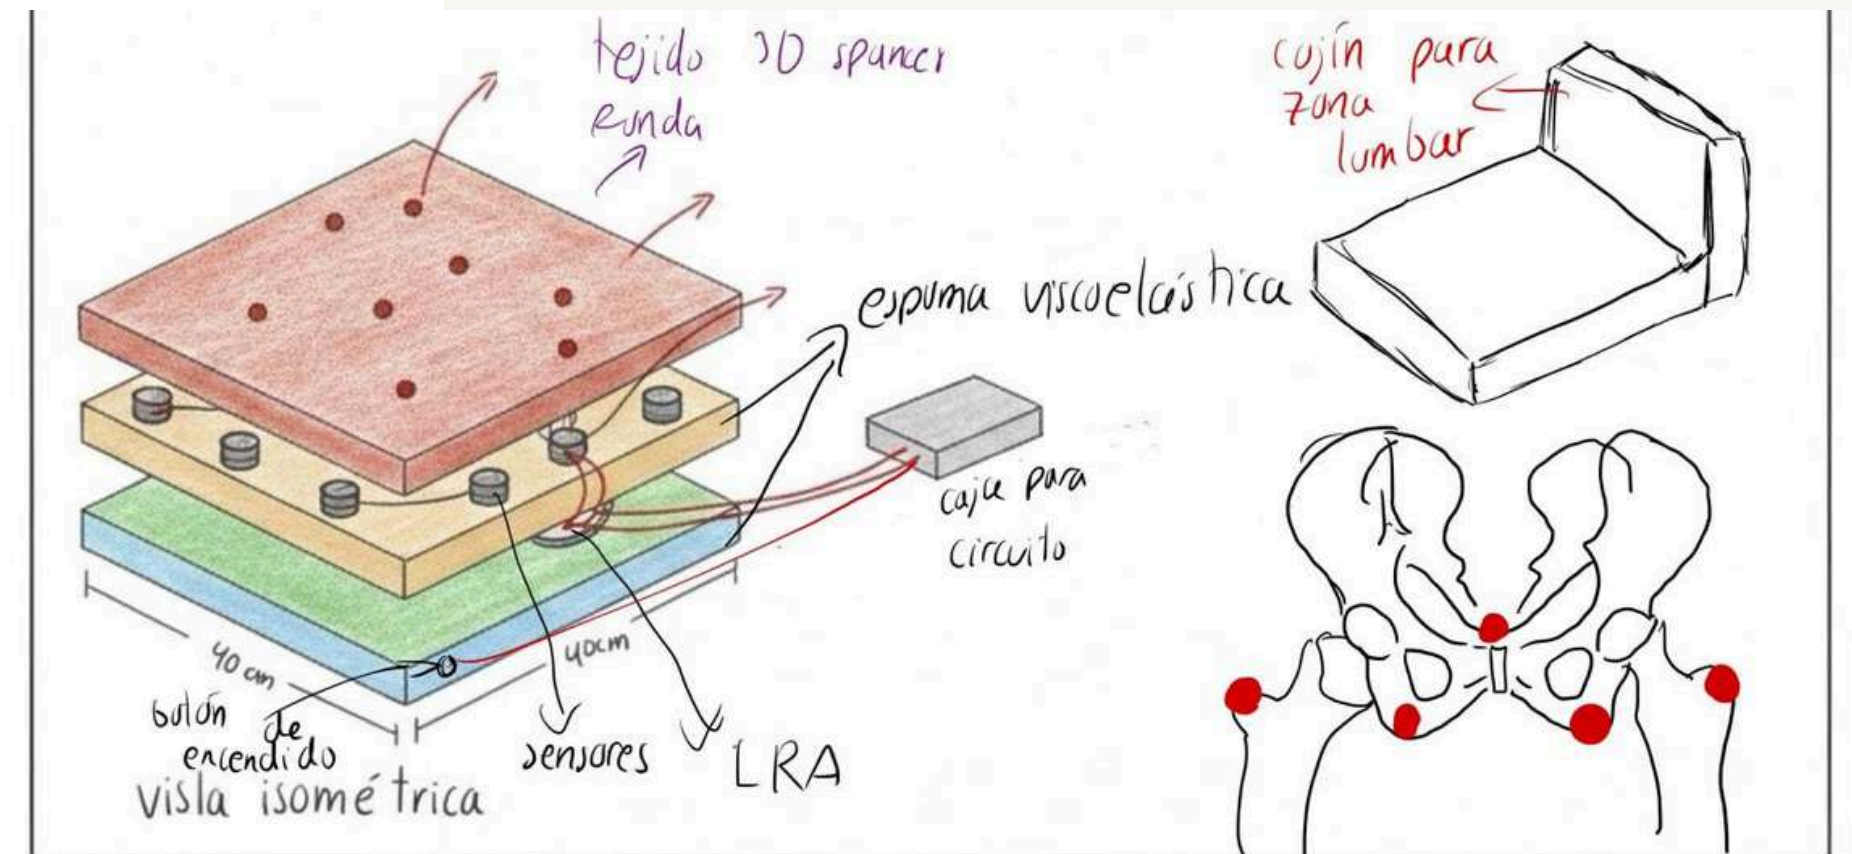 tejido 3D spancer
funda
cojín para
zona
lumbar
espuma viscoelástica
caja para
circuito
40 cm
40cm
botón
de
encendido
sensores
LRA
vista isométrica